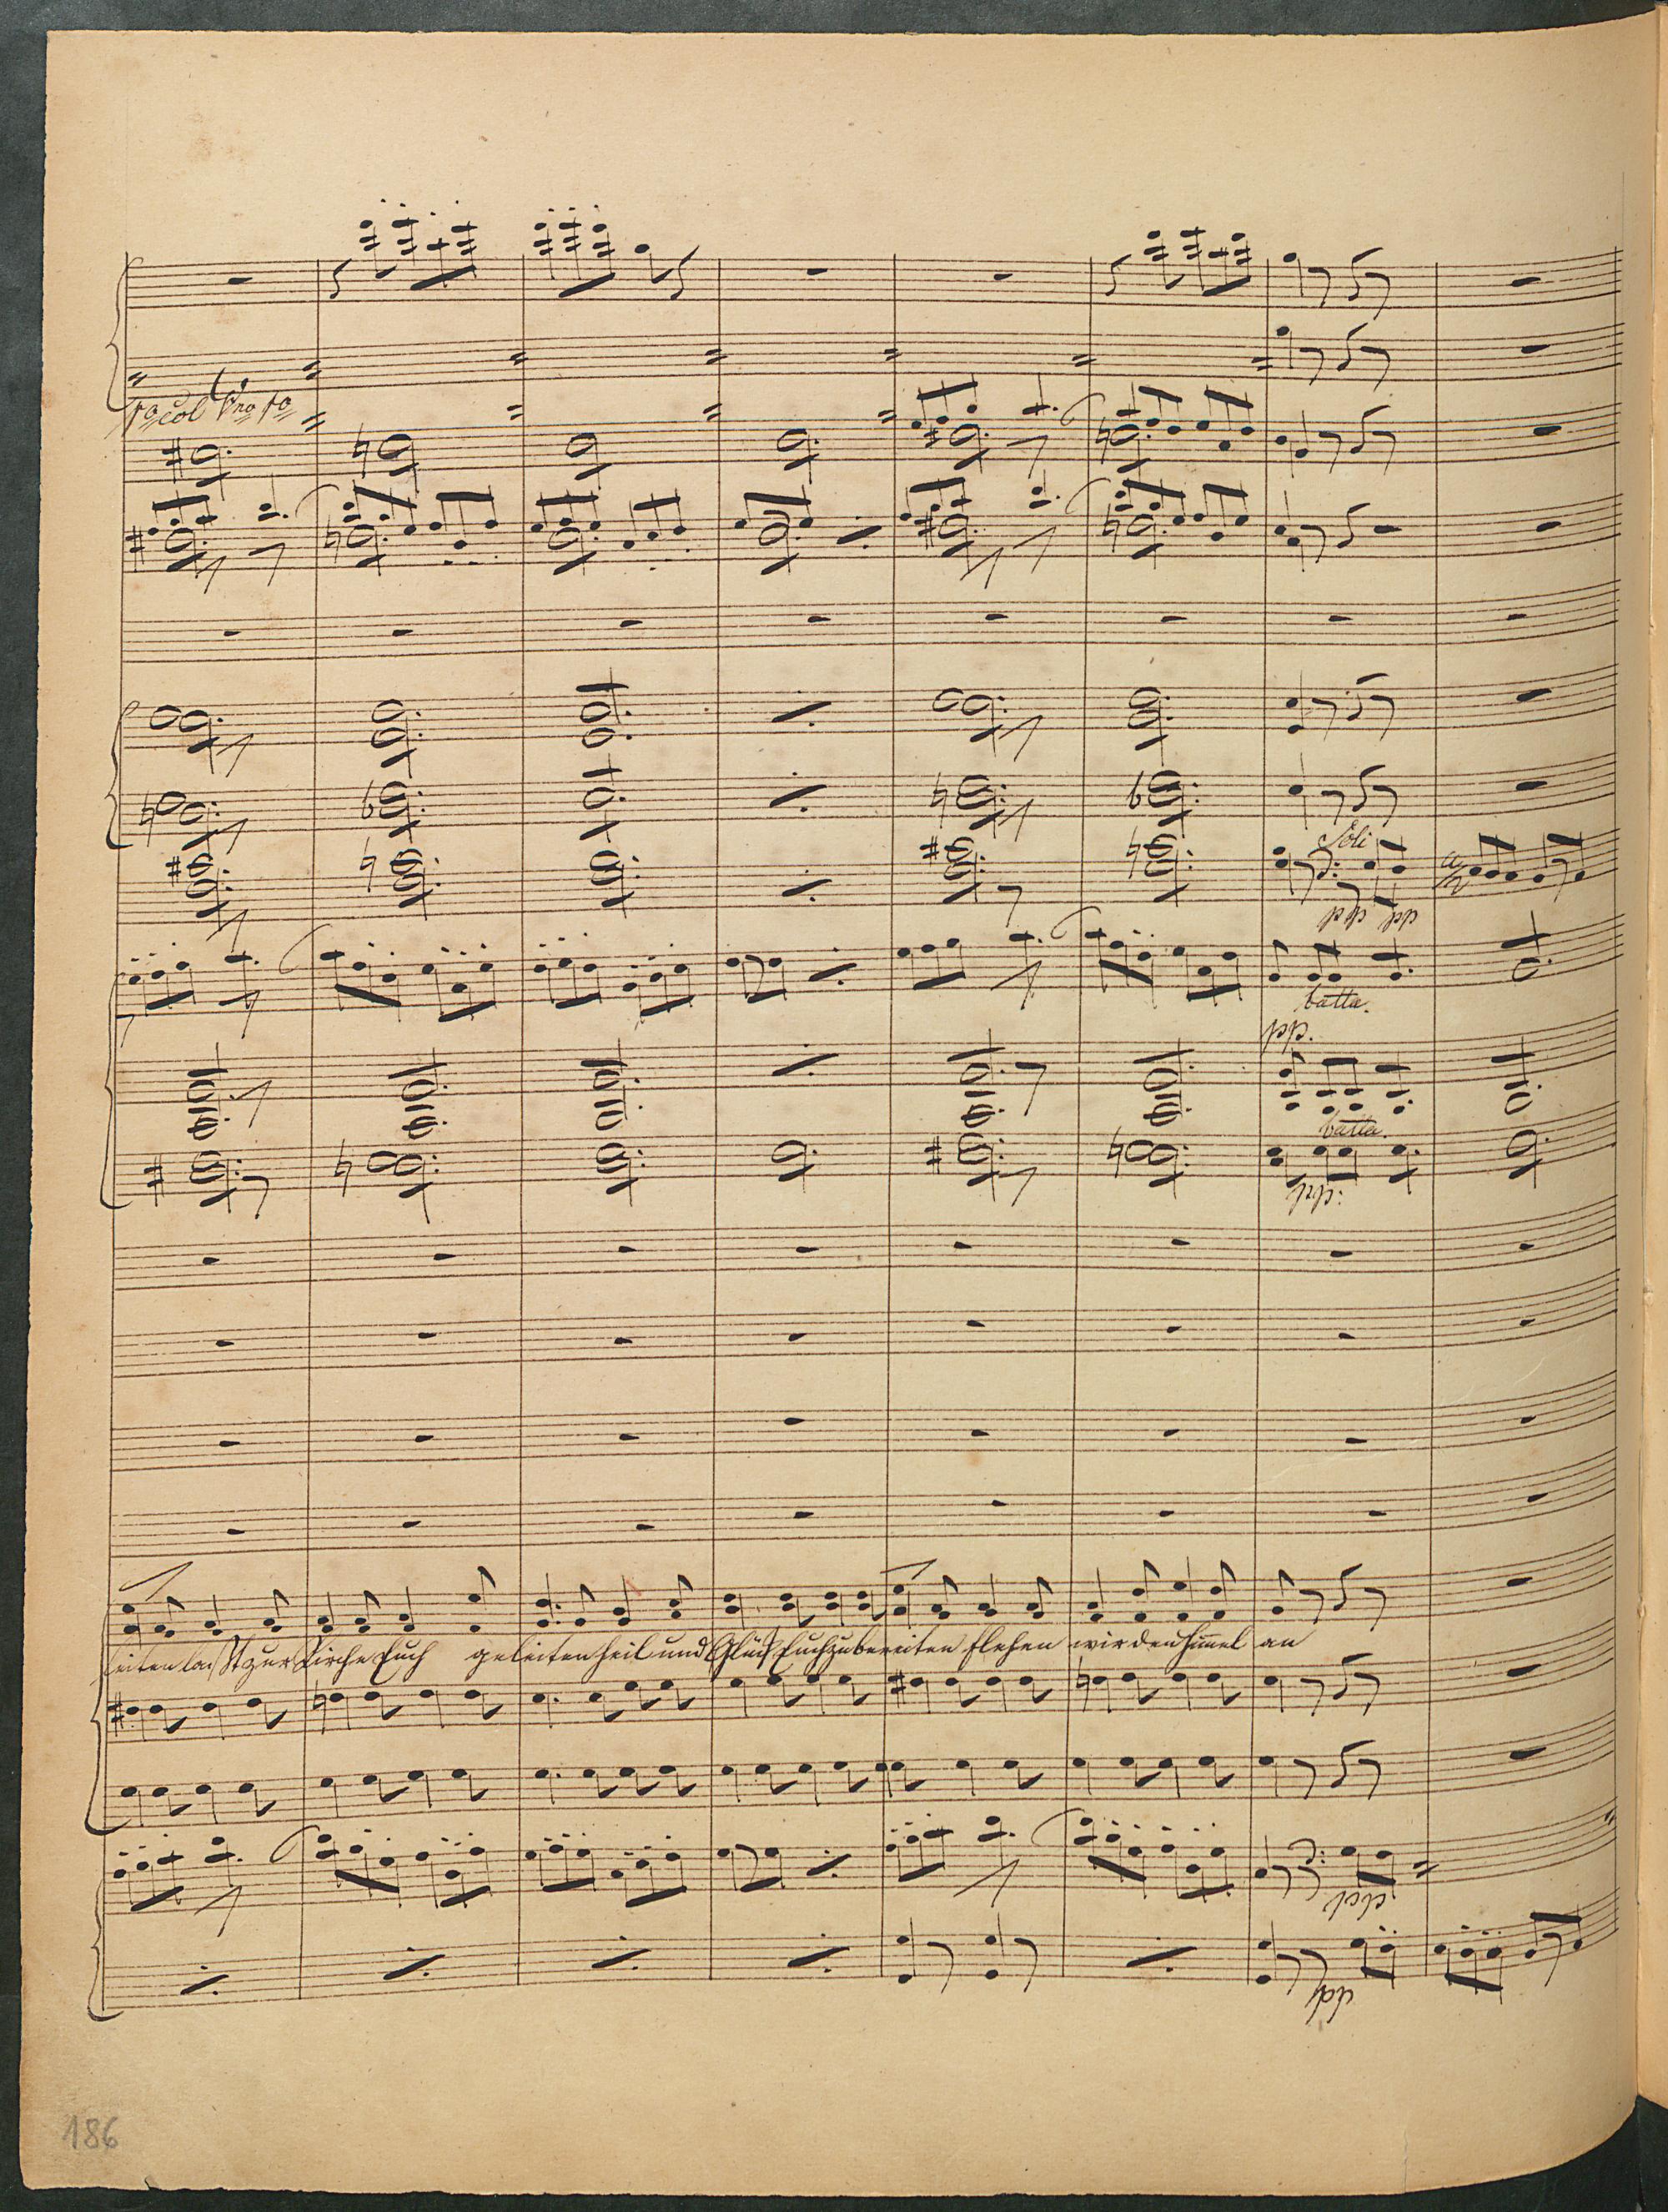 1o col Vno 1o
Soli
pp pp
a 2
batta.
pp.
batta.
pp:
leiten lasst zur Kirche Euch geleiten heil und Glück Euch zu bereiten flehen wir den Himel an
pp
pp
186